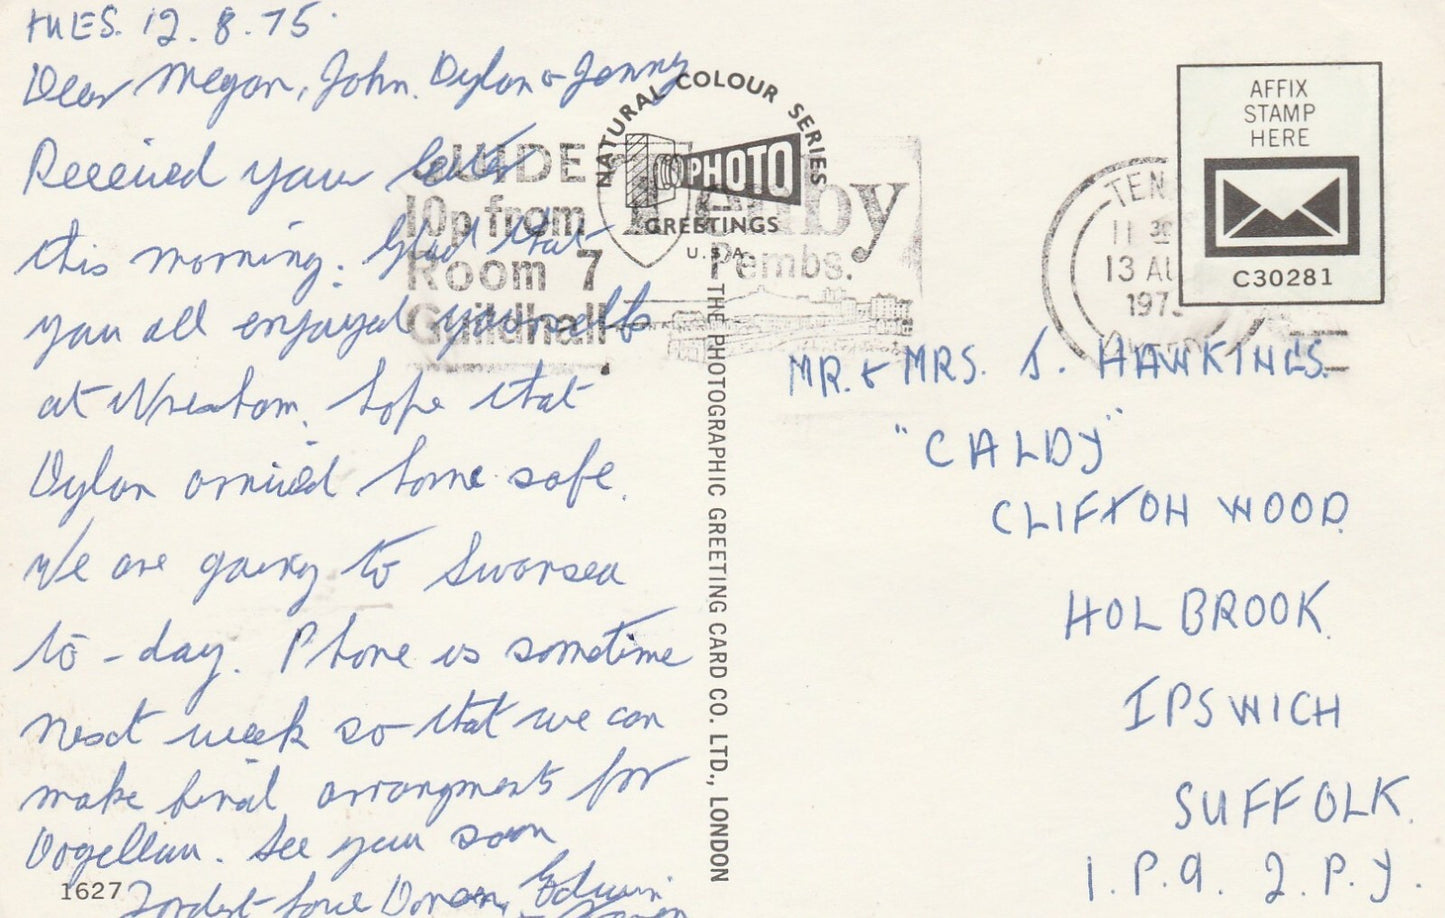 TUES. 12.8.75.
Dear Megan, John. Dylan & Jenny
Received your letter
this morning. Glad that
you all enjoyed yourselfs
at Wrexham, hope that
Dylan arrived home safe.
We are going to Swansea
to-day. Phone us sometime
next week so that we can
make final arrangments for
Dogellau. See you soon
Fondest love Doreen, Edwin
1627
NATURAL COLOUR SERIES
PHOTO
GREETINGS
U.S.A.
THE PHOTOGRAPHIC GREETING CARD CO. LTD., LONDON
GUIDE
10p from
Room 7
Guildhall
Tenby
Pembs.
TEN
11 30
13 AU
197
AFFIX
STAMP
HERE
C30281
MR. & MRS. J. HAWKINGS.
"CALDY"
CLIFTON WOOD
HOLBROOK.
IPSWICH
SUFFOLK.
I.P.9. 2.P.Y.